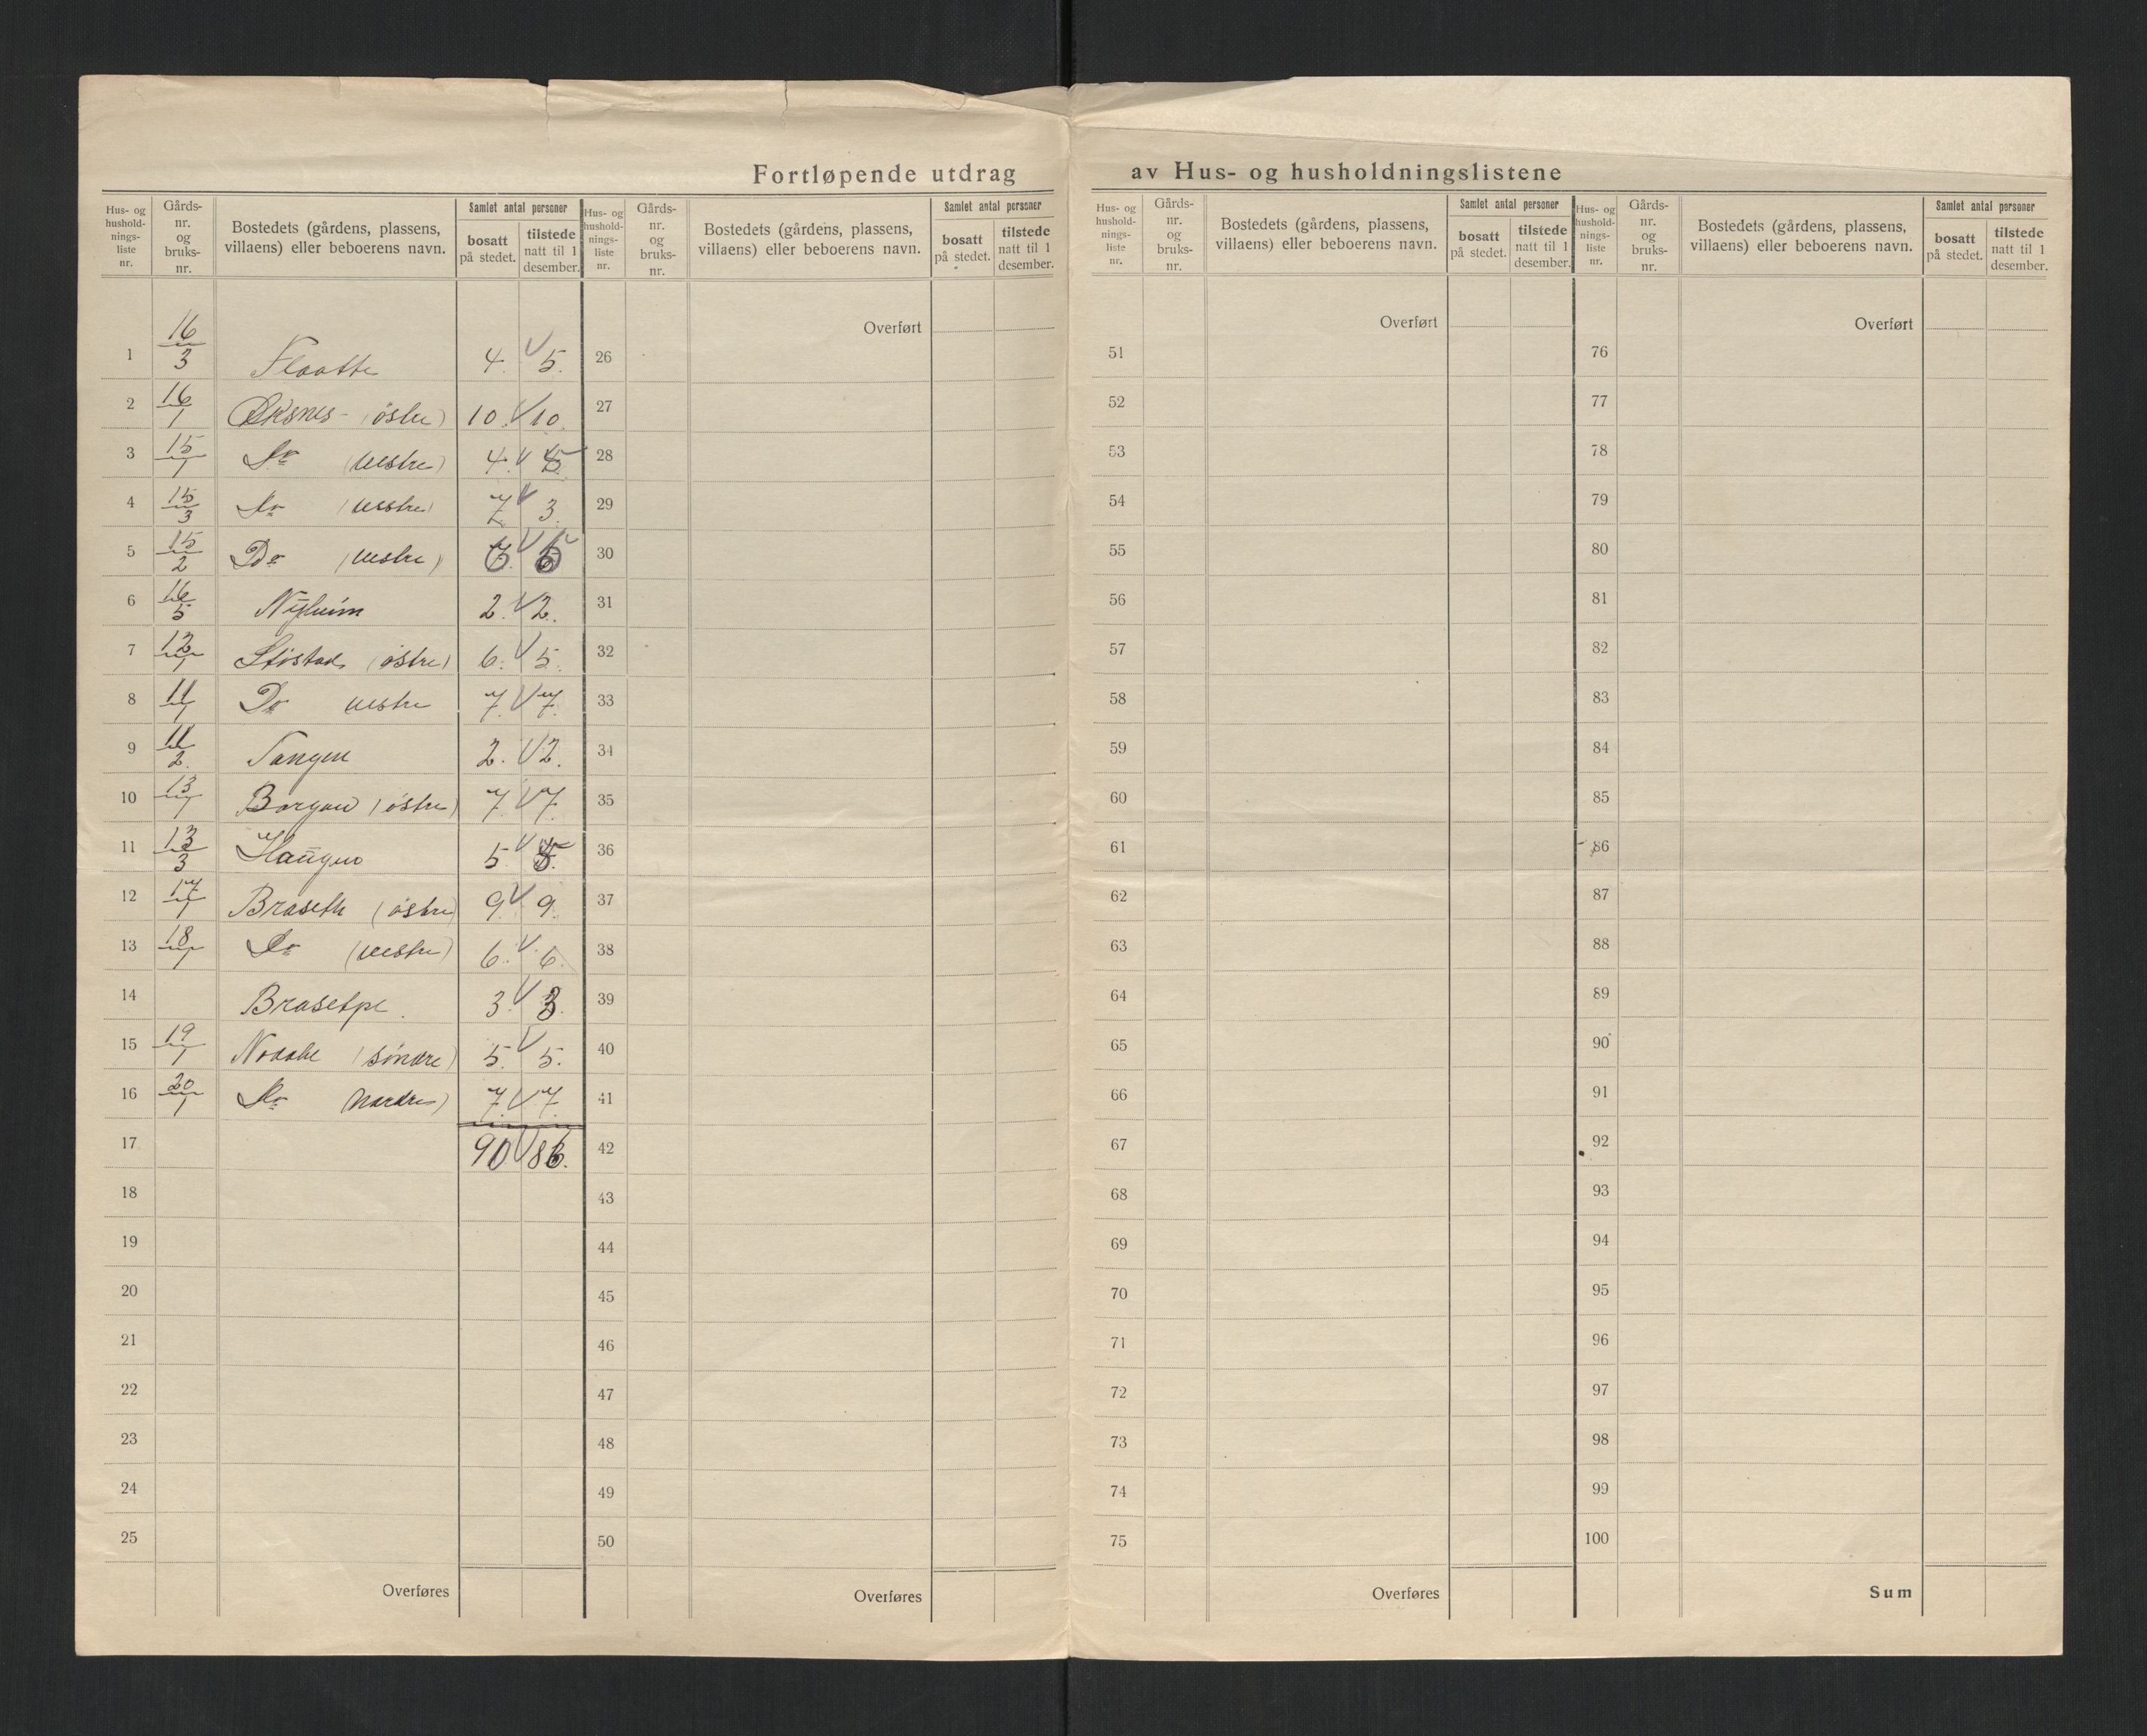 Fortløpende utdrag av Hus- og husholdningslistene
Hus- og hushold-nings-liste nr. Gårds-nr. og bruks-nr. Bostedets (gårdens, plassens, villaens) eller beboerens navn. Samlet antal personer bosatt på stedet. tilstede natt til 1 desember.
1 16/3 Flaatte 4. 5.
2 16/1 Øksnes (östre) 10. 10.
3 15/1 Do (vestre) 4. 5
4 15/3 Do (vestre) 7 3
5 15/2 Do (vestre)
6 16/5 Nÿheim 2. 2.
7 12/1 Støstad (östre) 6. 5.
8 11/1 Do vestre 7. 7.
9 11/2. Tangen 2. 2.
10 13/1 Borgan (östre) 7. 7.
11 13/3 Haugen 5. 5.
12 17/1 Braseth (östre) 9. 9.
13 18/1 Do (vestre) 6. 6.
14 Brasetpl. 3. 3.
15 19/1 (söndre) 5. 5.
16 20/1 Do (nordre) 7. 7.
17 90 86.
18
19
20
21
22
23
24
25
Overføres
Hus- og hushold-nings-liste nr. Gårds-nr. og bruks-nr. Bostedets (gårdens, plassens, villaens) eller beboerens navn. Samlet antal personer bosatt på stedet. tilstede natt til 1 desember.
Overført
26
27
28
29
30
31
32
33
34
35
36
37
38
39
40
41
42
43
44
45
46
47
48
49
50
Overføres
Hus- og hushold-nings-liste nr. Gårds-nr. og bruks-nr. Bostedets (gårdens, plassens, villaens) eller beboerens navn. Samlet antal personer bosatt på stedet. tilstede natt til 1 desember.
Overført
51
52
53
54
55
56
57
58
59
60
61
62
63
64
65
66
67
68
69
70
71
72
73
74
75
Overføres
Hus- og hushold-nings-liste nr. Gårds-nr. og bruks-nr. Bostedets (gårdens, plassens, villaens) eller beboerens navn. Samlet antal personer bosatt på stedet. tilstede natt til 1 desember.
Overført
76
77
78
79
80
81
82
83
84
85
86
87
88
89
90
91
92
93
94
95
96
97
98
99
100
Sum